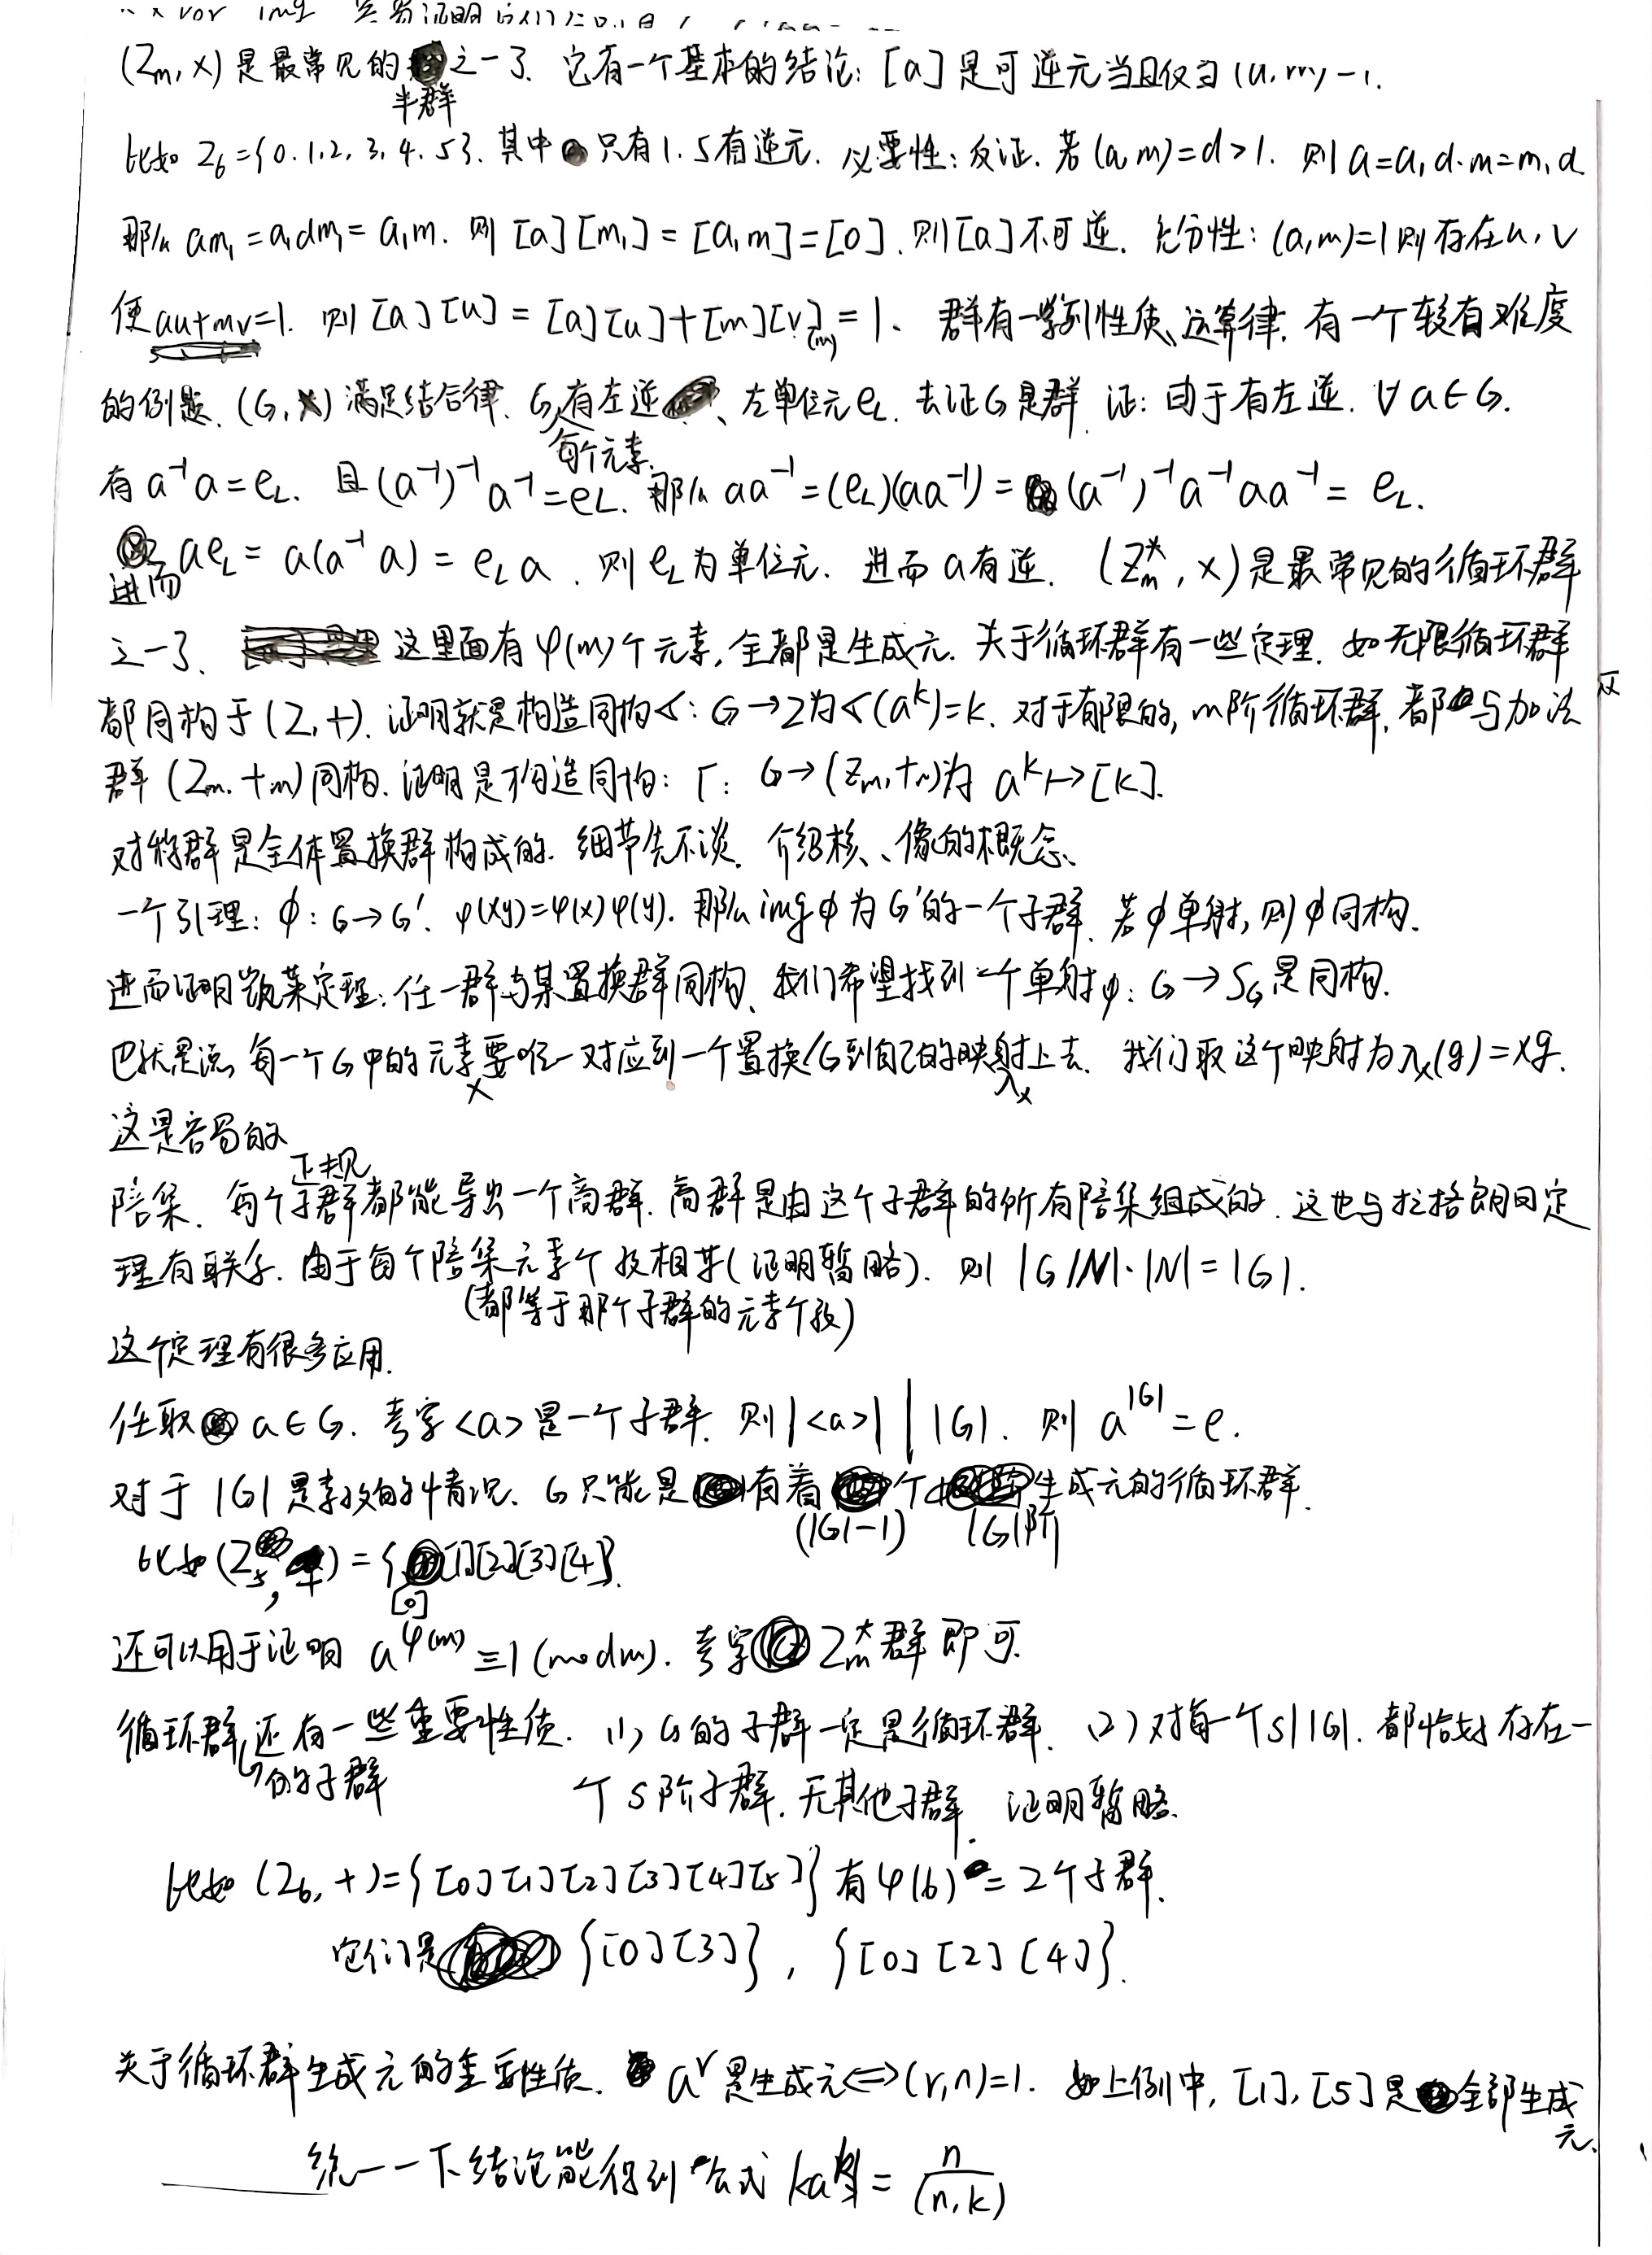 (Zm, ×) 是最常见的半群之一了. 它有一个基本的结论: [a] 是可逆元当且仅当
比如 Z6={0.1.2.3.4.5}. 其中只有1.5有逆元. 必要性: 反证. 若(a,m)=d>1. 则 a=a₁d. m=m₁d
那么 am₁=a₁dm₁=a₁m. 则 [a][m₁]=[a₁m]=[0]. 则[a]不可逆. 充分性: (a,m)=1则存在u,v
使au+mv=1. 则 [a][u]=[a][u]+[m][v]=1. 群有一系列性质、运算律. 有一个较有难度
的例题. (G,×) 满足结合律. G每个元素有左逆、左单位元eL. 去证G是群. 证: 由于有左逆. ∀a∈G.
有 a⁻¹a=eL. 且 (a⁻¹)⁻¹a⁻¹=eL. 那么 aa⁻¹=(eL)(aa⁻¹)=(a⁻¹)⁻¹a⁻¹aa⁻¹=eL.
进而 aeL=a(a⁻¹a)=eLa. 则eL为单位元. 进而a有逆. (Zm*, ×)是最常见的循环群
之一了. 这里面有φ(m)个元素, 全都是生成元. 关于循环群有一些定理. 如无限循环群
都同构于(Z,+). 证明就是构造同构σ: G→Z为σ(aᵏ)=k. 对于有限的, m阶循环群, 都与加法
群 (Zm,+m)同构. 证明是构造同构: Γ: G→(Zm,+m)为 aᵏ↦[k].
对称群是全体置换群构成的. 细节先不谈. 介绍核、像的概念.
一个引理: φ: G→G'. φ(xy)=φ(x)φ(y). 那么 imgφ 为G'的一个子群. 若φ单射, 则φ同构.
进而证明凯莱定理: 任一群与某置换群同构. 我们希望找到一个单射φ: G→SG是同构.
也就是说, 每一个G中的元素x要唯一对应到一个置换(G到自己的映射λx上去. 我们取这个映射为λx(g)=xg.
这是容易的
陪集. 每个正规子群都能导出一个商群. 商群是由这个子群的所有陪集组成的. 这也与拉格朗日定
理有联系. 由于每个陪集元素个数相等(证明暂略). 则 |G/N|·|N|=|G|.
(都等于那个子群的元素个数)
这个定理有很多应用.
任取 a∈G. 考察<a>是一个子群. 则 |<a>| | |G|. 则 a^|G|=e.
对于 |G| 是素数的情况. G只能是有着(|G|-1)个|G|阶生成元的循环群.
比如(Z5, +)={[0][1][2][3][4]}.
还可以用于证明 a^φ(m)≡1(mod m). 考察 Zm*群即可.
循环群的子群还有一些重要性质. (1) G的子群一定是循环群. (2) 对每一个s||G|. 都恰好存在一
个s阶子群. 无其他子群. 证明暂略.
比如 (Z6, +)={[0][1][2][3][4][5]}有φ(6)=2个子群.
它们是 {[0][3]}, {[0][2][4]}.
关于循环群生成元的重要性质. aʳ是生成元⟺(r,n)=1. 如上例中, [1],[5]是全部生成元.
统一一下结论能得到公式 |<aᵏ>|=n/(n,k)